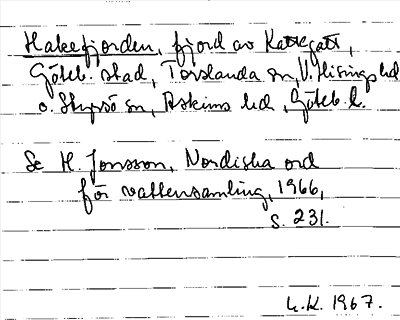 Hakefjorden, fjord av Kattegatt,
Göteb. stad, Torslanda sn, V. Hisings hd
o. Styrsö sn, Askims hd, Göteb. l.
Se H. Jonsson, Nordiska ord
för vattensamling, 1966,
s. 231.
L.K. 1967.